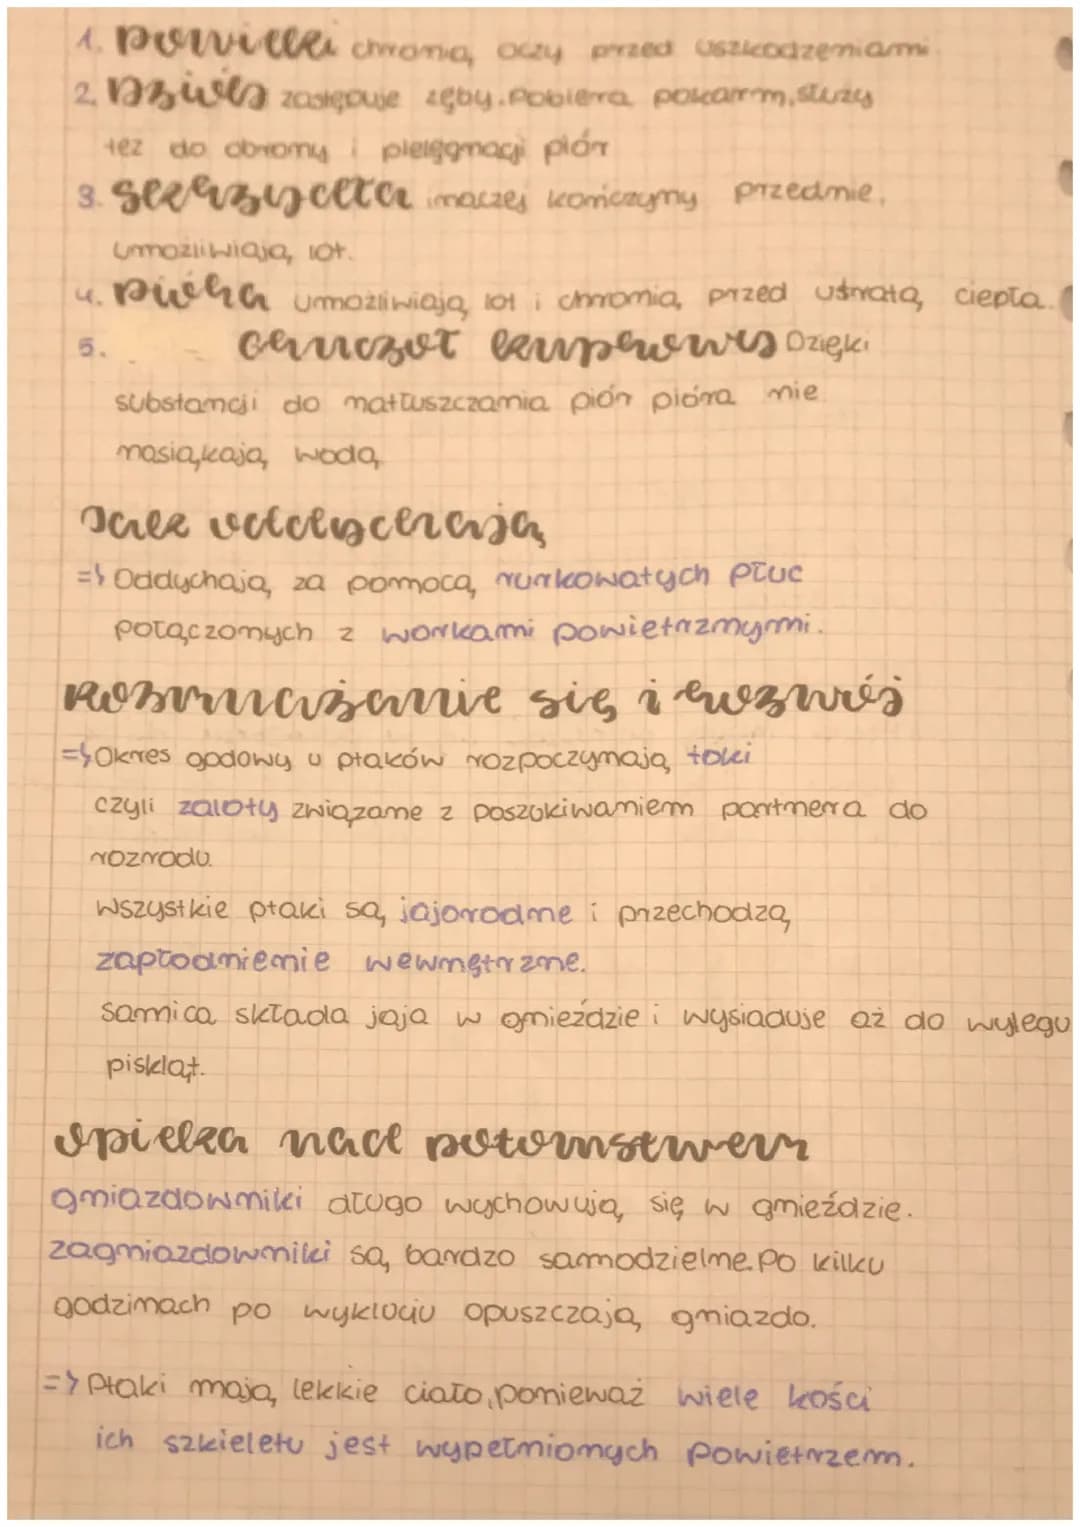 1. Powieki chronią oczy przed uszkodzeniami
2. Dziób zastępuje zęby. Pobiera pokarm, służy
też do obrony i pielęgnacji piór
3. Skrzydła inaczej kończyny przednie,
umożliwiają lot.
4. Pióra umożliwiają lot i chronią przed utratą ciepła.
5. Gruczoł kuprowy Dzięki
substancji do natłuszczania piór pióra nie
nasiąkają wodą
Jak oddychają
=> Oddychają za pomocą rurkowatych płuc
połączonych z workami powietrznymi.
Rozmnażanie się i rozwój
=> Okres godowy u ptaków rozpoczynają toki
czyli zaloty związane z poszukiwaniem partnera do
rozrodu.
Wszystkie ptaki są jajorodne i przechodzą
zapłodnienie wewnętrzne.
Samica składa jaja w gnieździe i wysiaduje aż do wylegu
piskląt.
Opieka nad potomstwem
gniazdowniki długo wychowują się w gnieździe.
zagniazdowniki są bardzo samodzielne. Po kilku
godzinach po wykluciu opuszczają gniazdo.
=> Ptaki mają lekkie ciało, ponieważ wiele kości
ich szkieletu jest wypełnionych powietrzem.